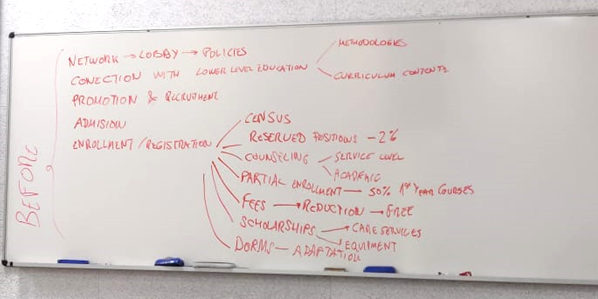 NETWORK → LOBBY → POLICIES
METHODOLOGIES
CONECTION WITH LOWER LEVEL EDUCATION
CURRICULUM CONTENTS
PROMOTION & RECRUITMENT
ADMISION
ENROLLMENT / REGISTRATION
CENSUS
RESERVED POSITIONS - 2%
COUNSELING
SERVICE LEVEL
ACADEMIC
PARTIAL ENROLLMENT — 50% 1st YEAR COURSES
FEES → REDUCTION → FREE
SCHOLARSHIPS
CARE SERVICES
EQUIPMENT
DORMS — ADAPTATION
BEFORE